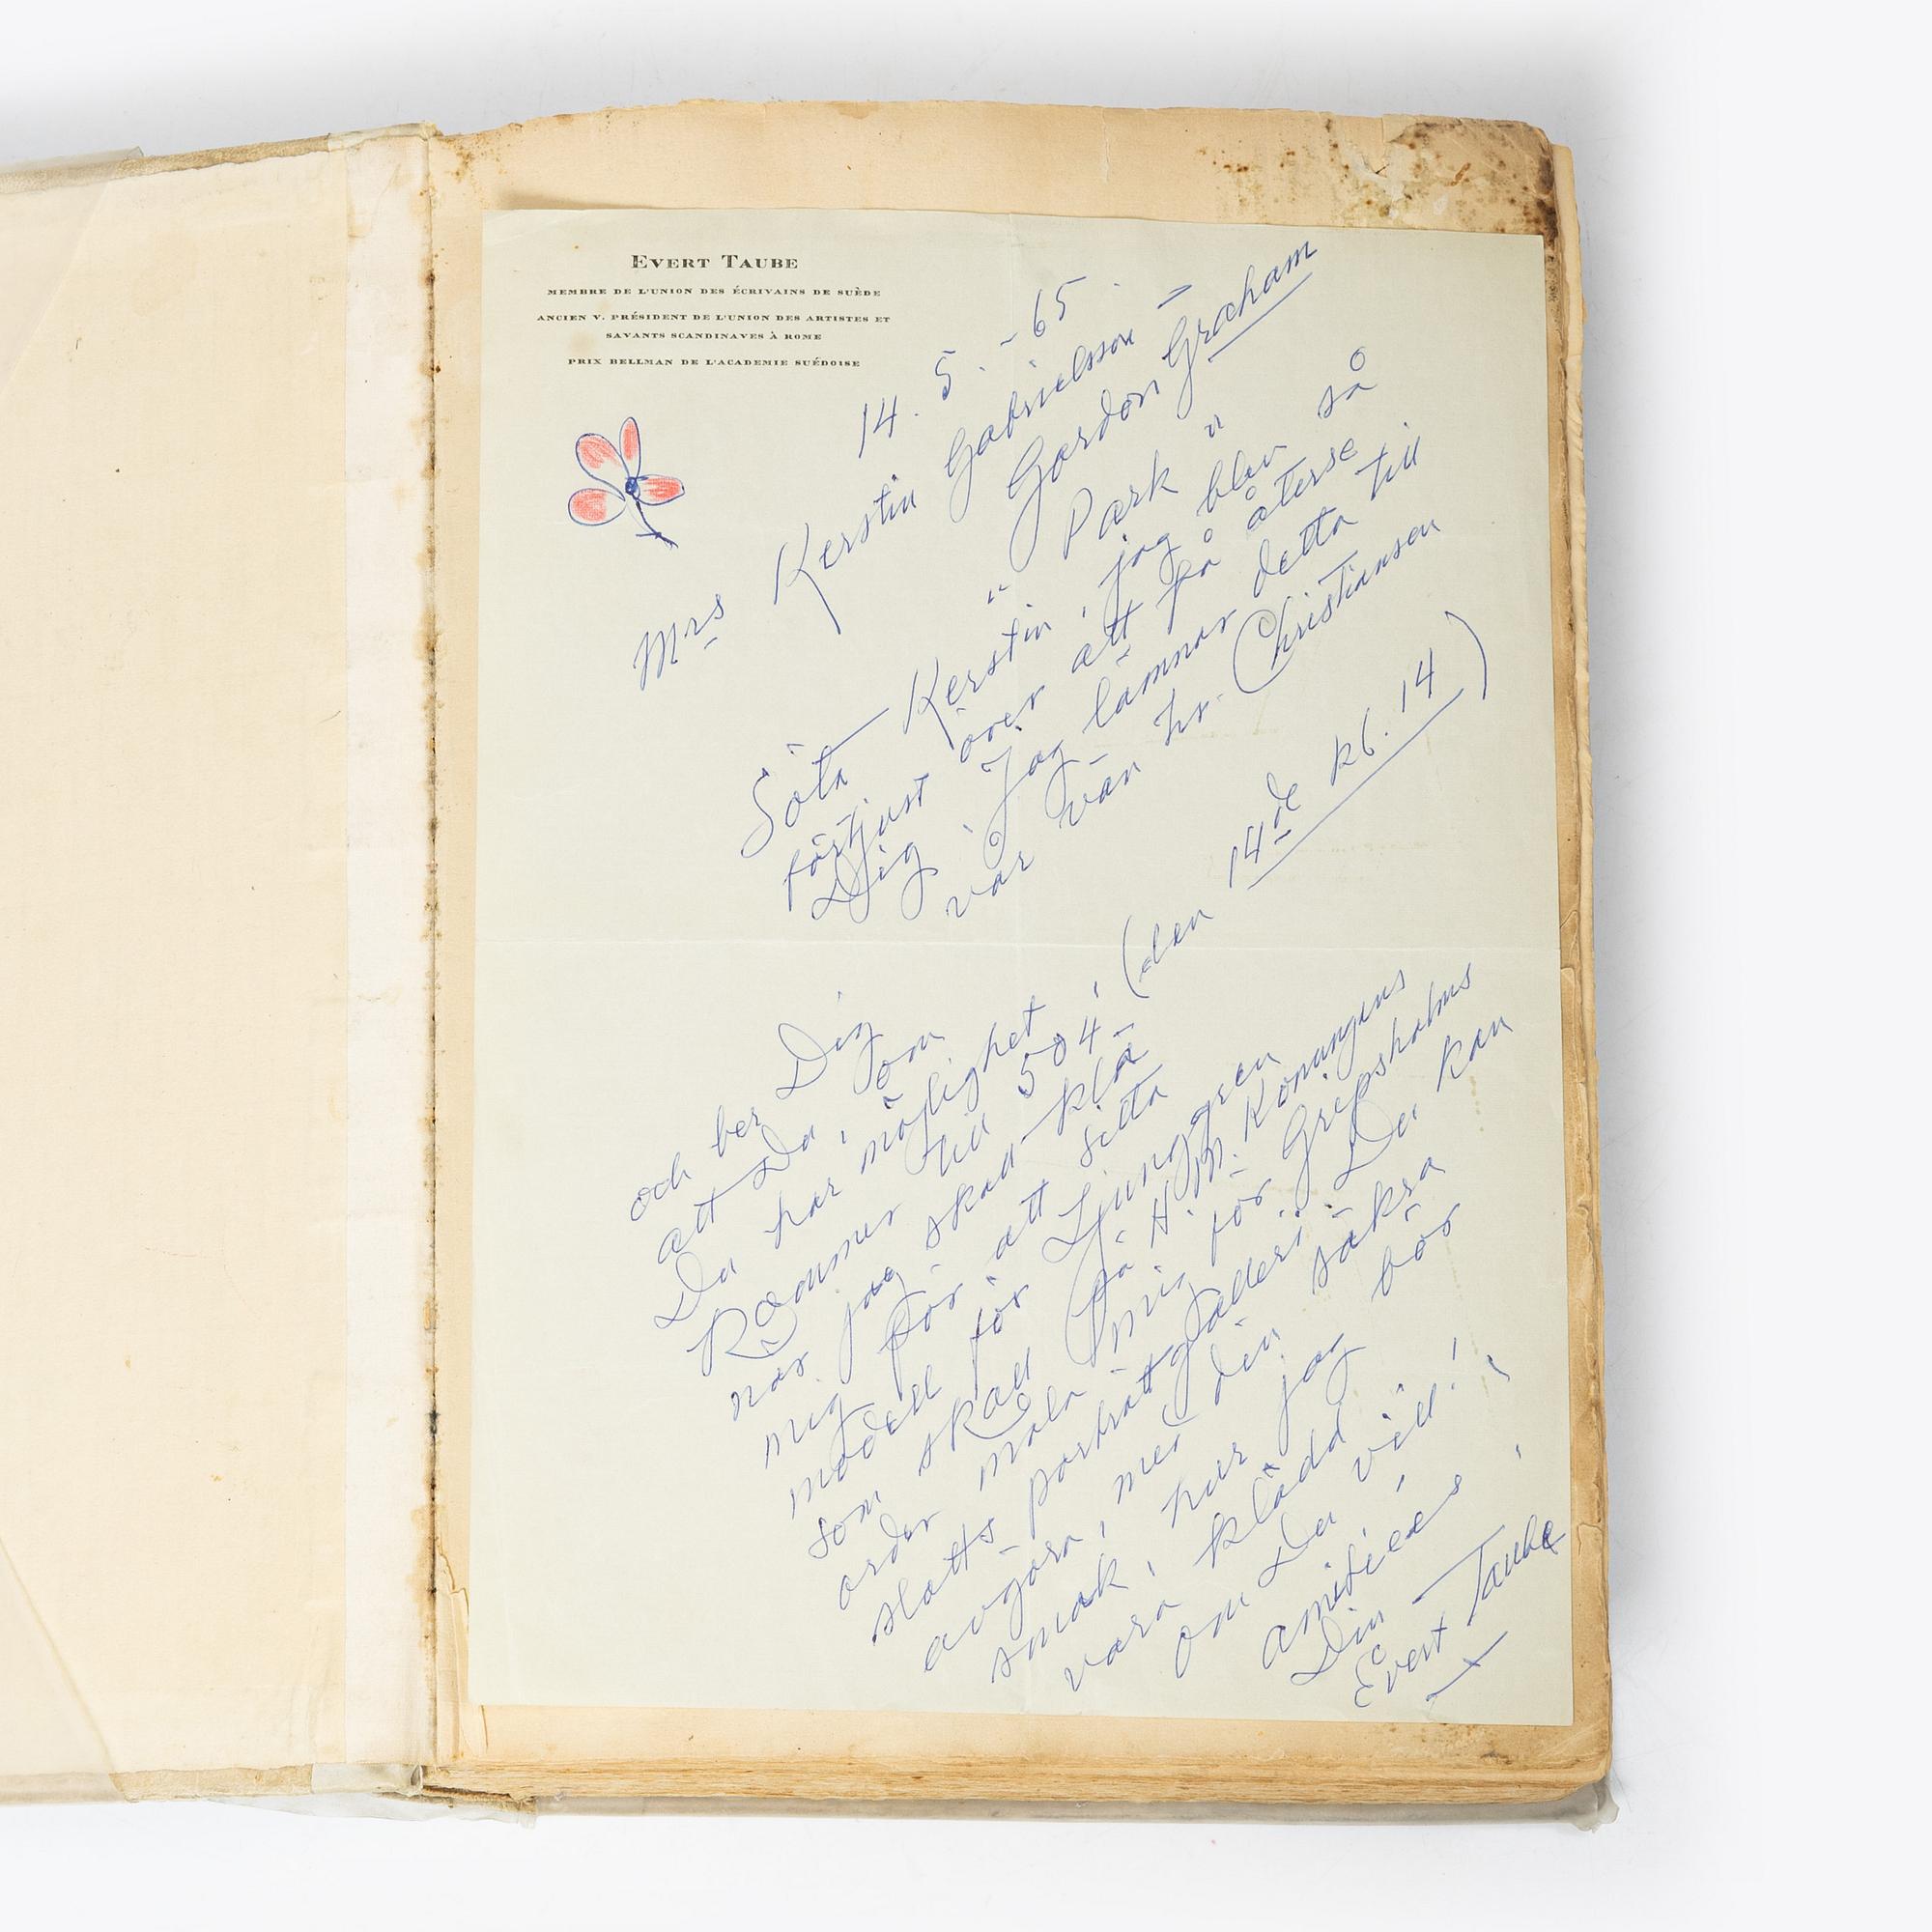 EVERT TAUBE
MEMBRE DE L'UNION DES ÉCRIVAINS DE SUÈDE
ANCIEN V. PRÉSIDENT DE L'UNION DES ARTISTES ET
SAVANTS SCANDINAVES À ROME
PRIX BELLMAN DE L'ACADEMIE SUÉDOISE
14. 5. -65
Mrs Kerstin Gabrielsson =
Gordon Graham
" Park "
Söta Kerstin, jag blev så
förtjust över att få återse
Dig. Jag lämnar detta till
vår vän hr. Christiansen
och ber Dig
att Du, om
Du har möjlighet
kommer till 504, (den 14de kl. 14)
när jag skall klä
mig för att sitta
modell för Ljunggren
som skall på H. M. Konungens
order måla mig för Gripsholms
slotts porträttgalleri. Du kan
avgöra, med din säkra
smak, hur jag bör
vara klädd
om Du vill!
Din
Evert Taube